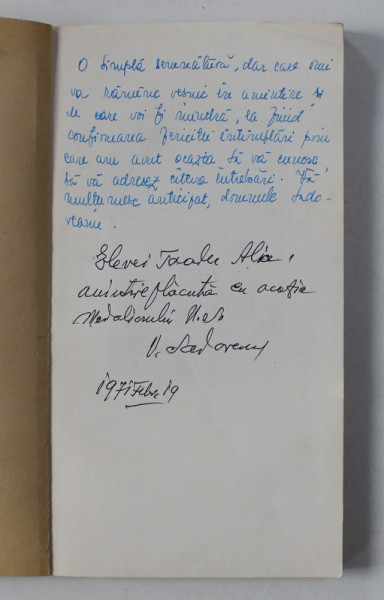 O simplă semnătură, dar care îmi
va rămâne veșnic în amintire și
de care voi fi mîndră, ea fiind
confirmarea fericitei întîmplări prin
care am avut ocazia să vă cunosc
să vă adresez cîteva întrebări. Vă
mulțumesc anticipat, domnule Sado-
veanu.
Elevei Toader Alice,
amintire plăcută cu ocazia
Medalionului
V. Sadoveanu
1971 Febr 19